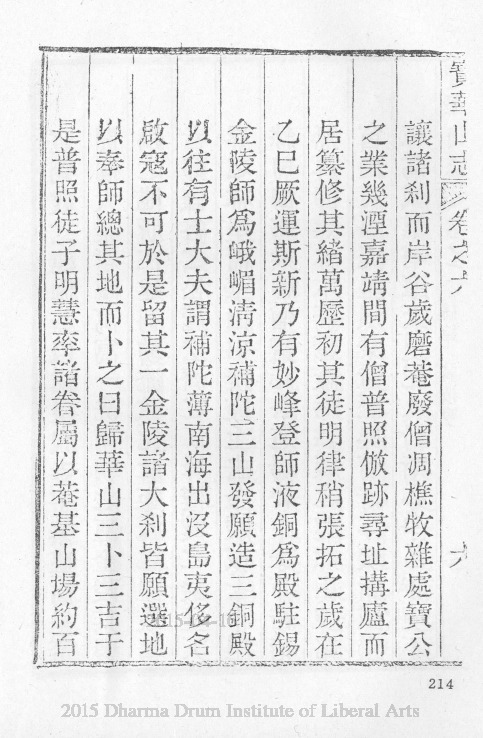 寶華山志 卷之六 六
讓諸刹而岸谷歲磨菴廢僧凋樵牧雜處寶公
之業幾湮嘉靖間有僧普照倣跡尋址搆廬而
居纂修其緒萬歷初其徒明律稍張拓之歲在
乙巳厥運斯新乃有妙峰登師液銅爲殿駐錫
金陵師爲峨嵋淸涼補陀三山發願造三銅殿
以往有士大夫謂補陀薄南海出沒島夷侈名
啟寇不可於是留其一金陵諸大刹皆願選地
以奉師總其地而卜之曰歸華山三卜三吉于
是普照徒子明慧率諸眷屬以菴基山場約百
214
2015 Dharma Drum Institute of Liberal Arts